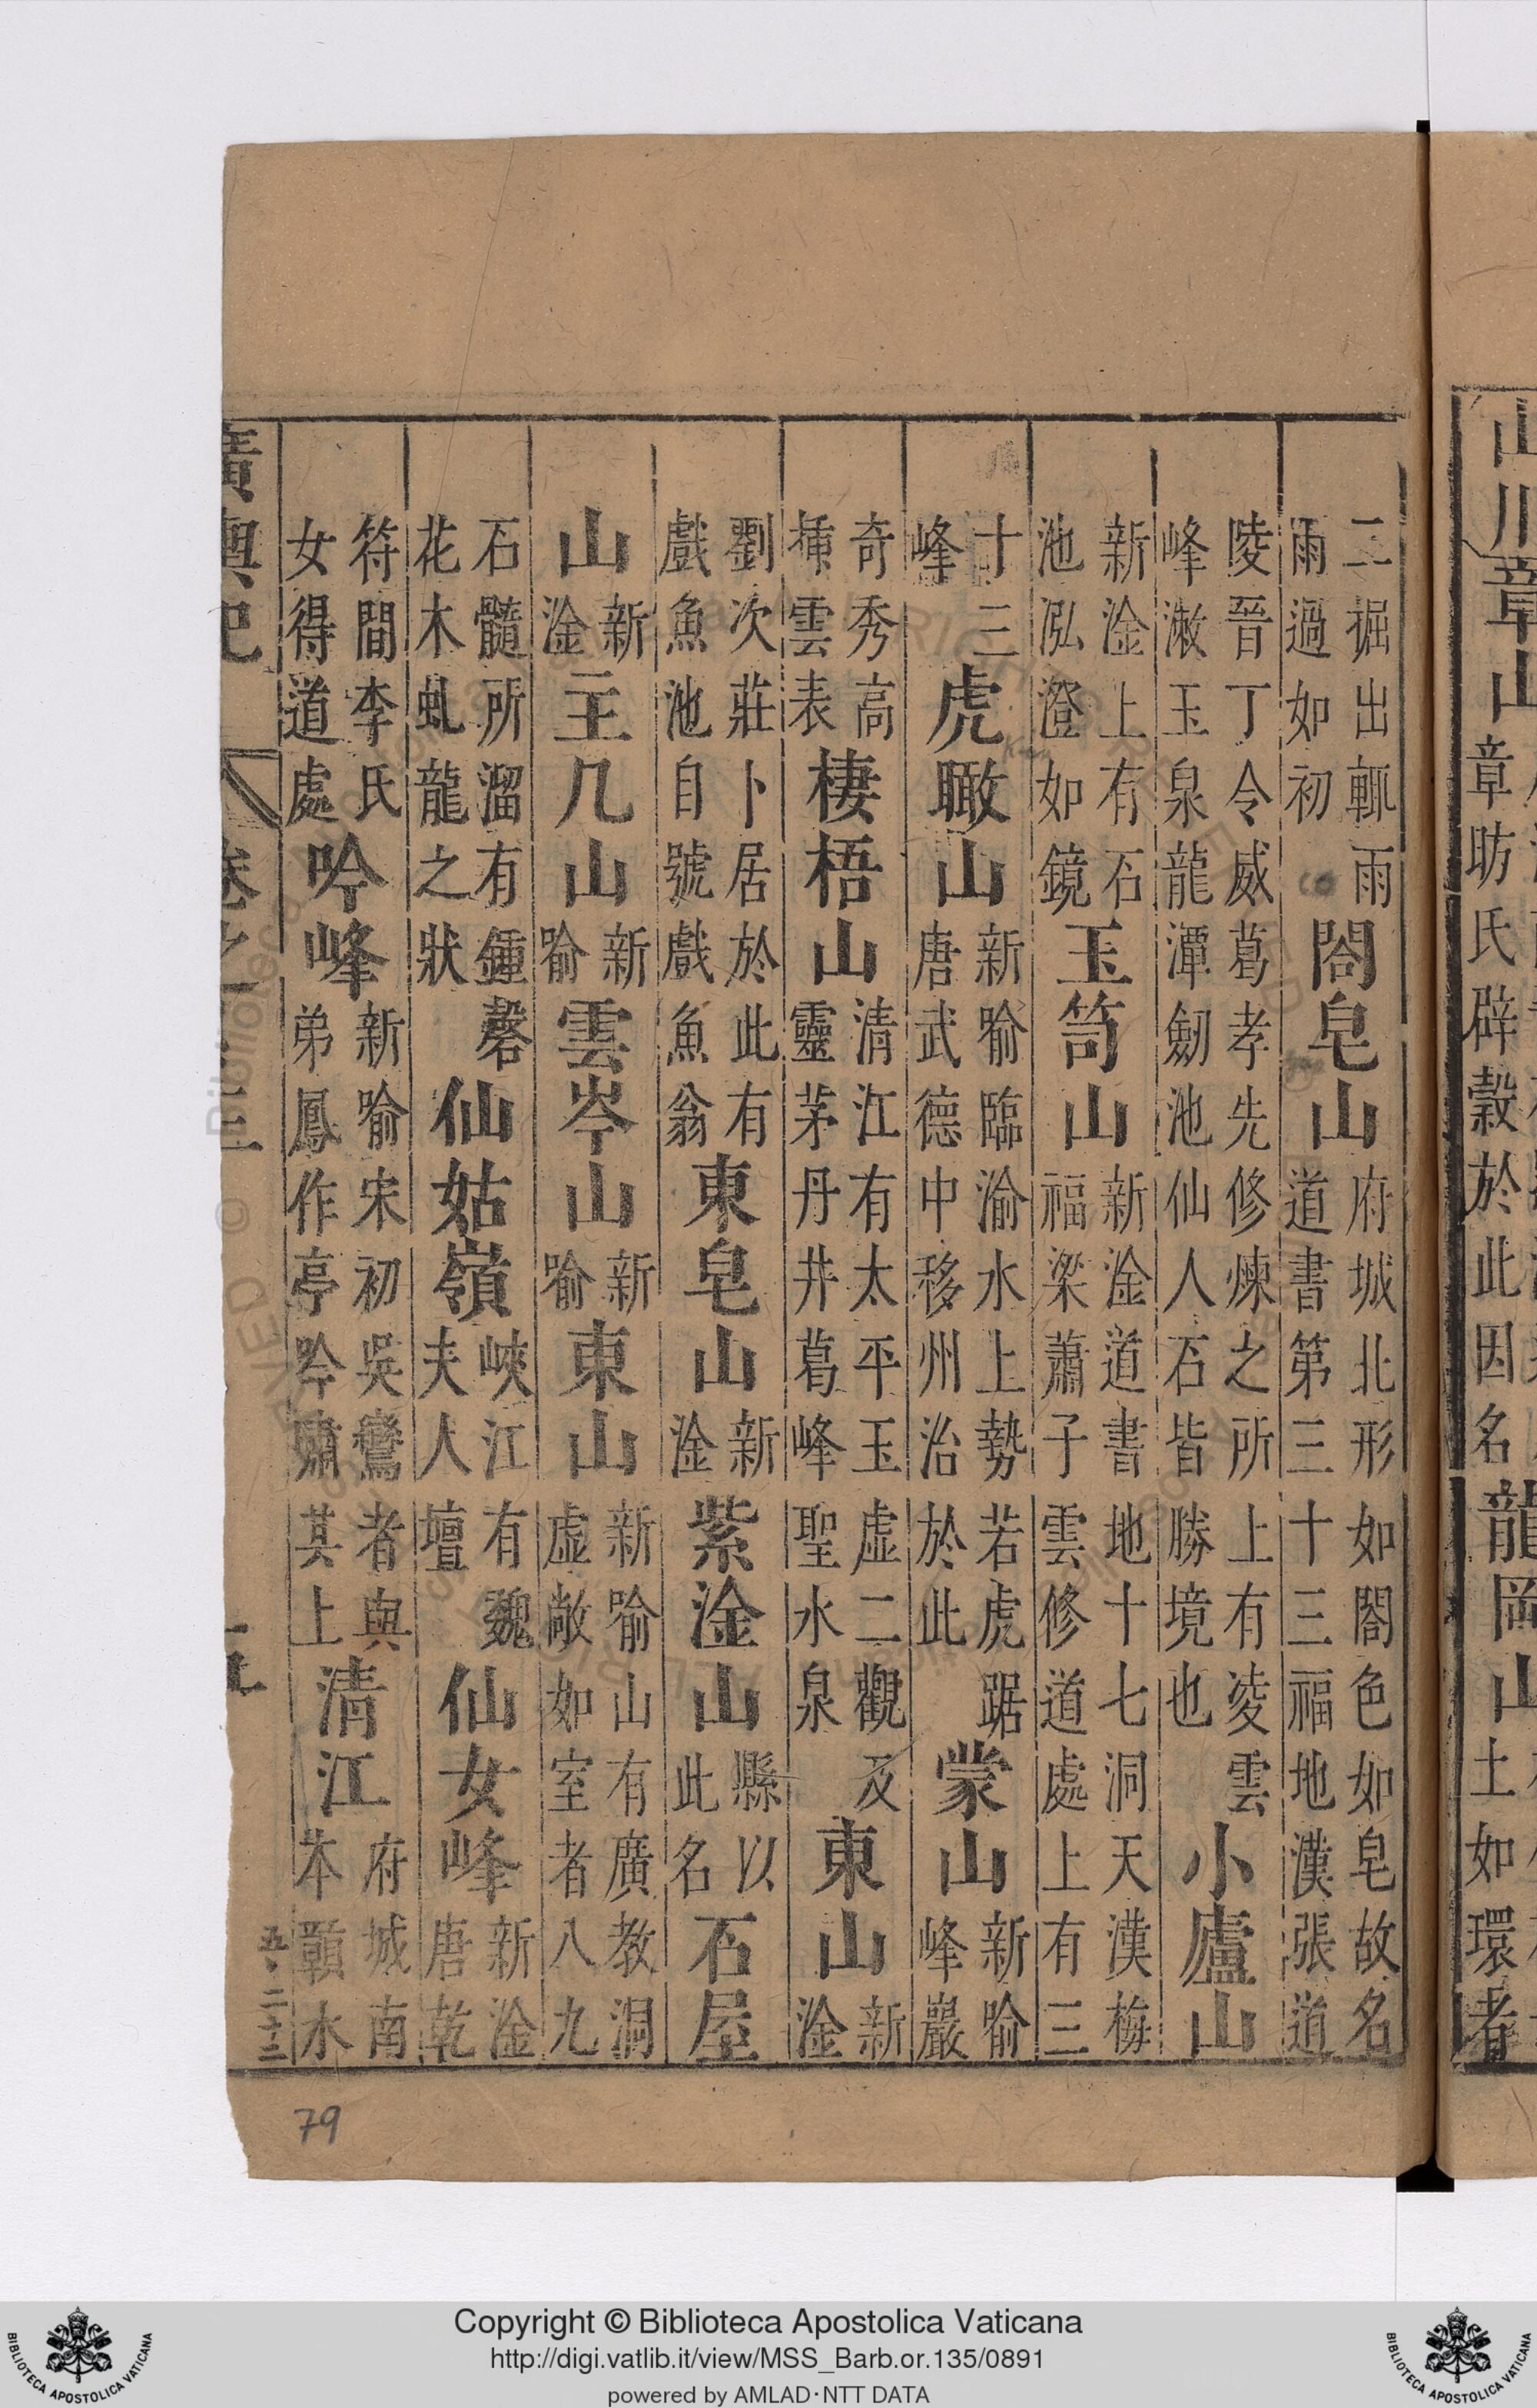 山川章山章昉氏辟穀於此因名龍岡山土如環者
二掘出輒雨
雨過如初
閤皂山
府城北形如閤色如皂故名
道書第三十三福地漢張道
陵晉丁令威葛孝先修煉之所上有凌雲
峰漱玉泉龍潭劒池仙人石皆勝境也
小廬山
新淦上有石
池泓澄如鏡
玉笥山
新淦道書地十七洞天漢梅
福梁蕭子雲修道處上有三
十三
峰
虎瞰山
新喻臨渝水上勢若虎踞
唐武德中移州治於此
蒙山
新喻
峰巖
奇秀高
插雲表
棲梧山
清江有太平玉虛二觀及
靈茅丹井葛峰聖水泉
東山
新
淦
劉次莊卜居於此有
戲魚池自號戲魚翁
東皂山
新
淦
紫淦山
縣以
此名
石屋
山
新
淦
主几山
新
喻
雲岑山
新
喻
東山
新喻山有廣教洞
虛敞如室者八九
石髓所溜有鍾磬
花木虬龍之狀
仙姑嶺
峽江有魏
夫人壇
仙女峰
新淦
唐乾
符間李氏
女得道處
吟峰
新喻宋初吳鸞者與
弟鳳作亭吟嘯其上
清江
府城南
本贛水
廣輿記
79
Copyright © Biblioteca Apostolica Vaticana
http://digi.vatlib.it/view/MSS_Barb.or.135/0891
powered by AMLAD·NTT DATA
BIBLIOTECA APOSTOLICA VATICANA
BIBLIOTECA APOSTOLICA VATICANA